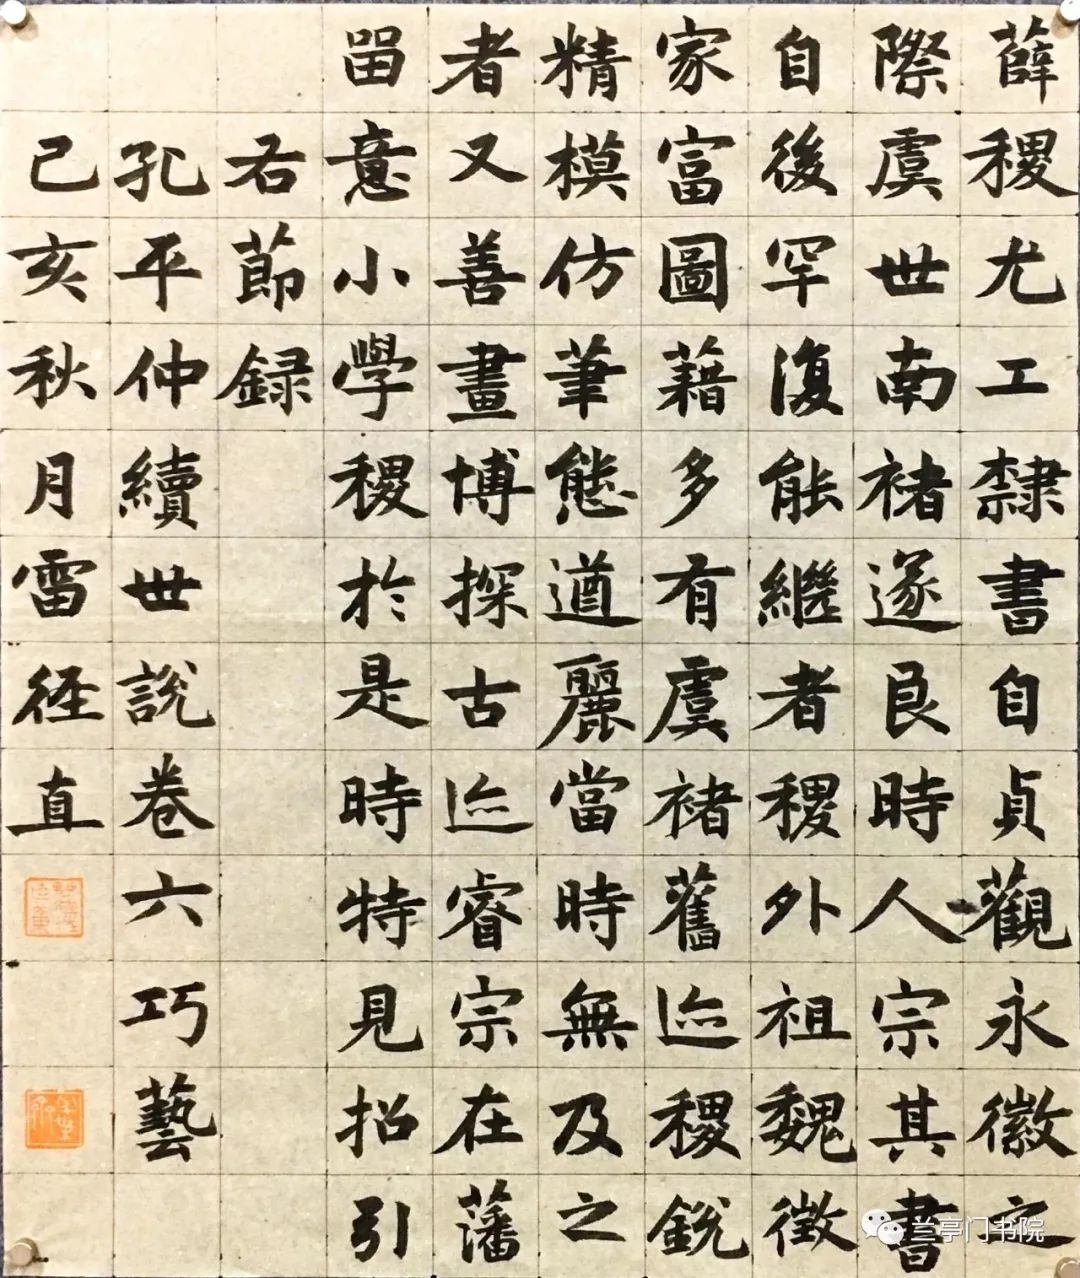 薛稷尤工隸書自貞觀永徽之
際虞世南褚遂良時人宗其書
自後罕復能繼者稷外祖魏徵
家富圖藉多有虞褚舊迹稷銳
精模仿筆態遒麗當時無及之
者又善畫博探古迹睿宗在藩
留意小學稷於是時特見招引
右節録
孔平仲續世說卷六巧藝
己亥秋月雷径直
兰亭门书院